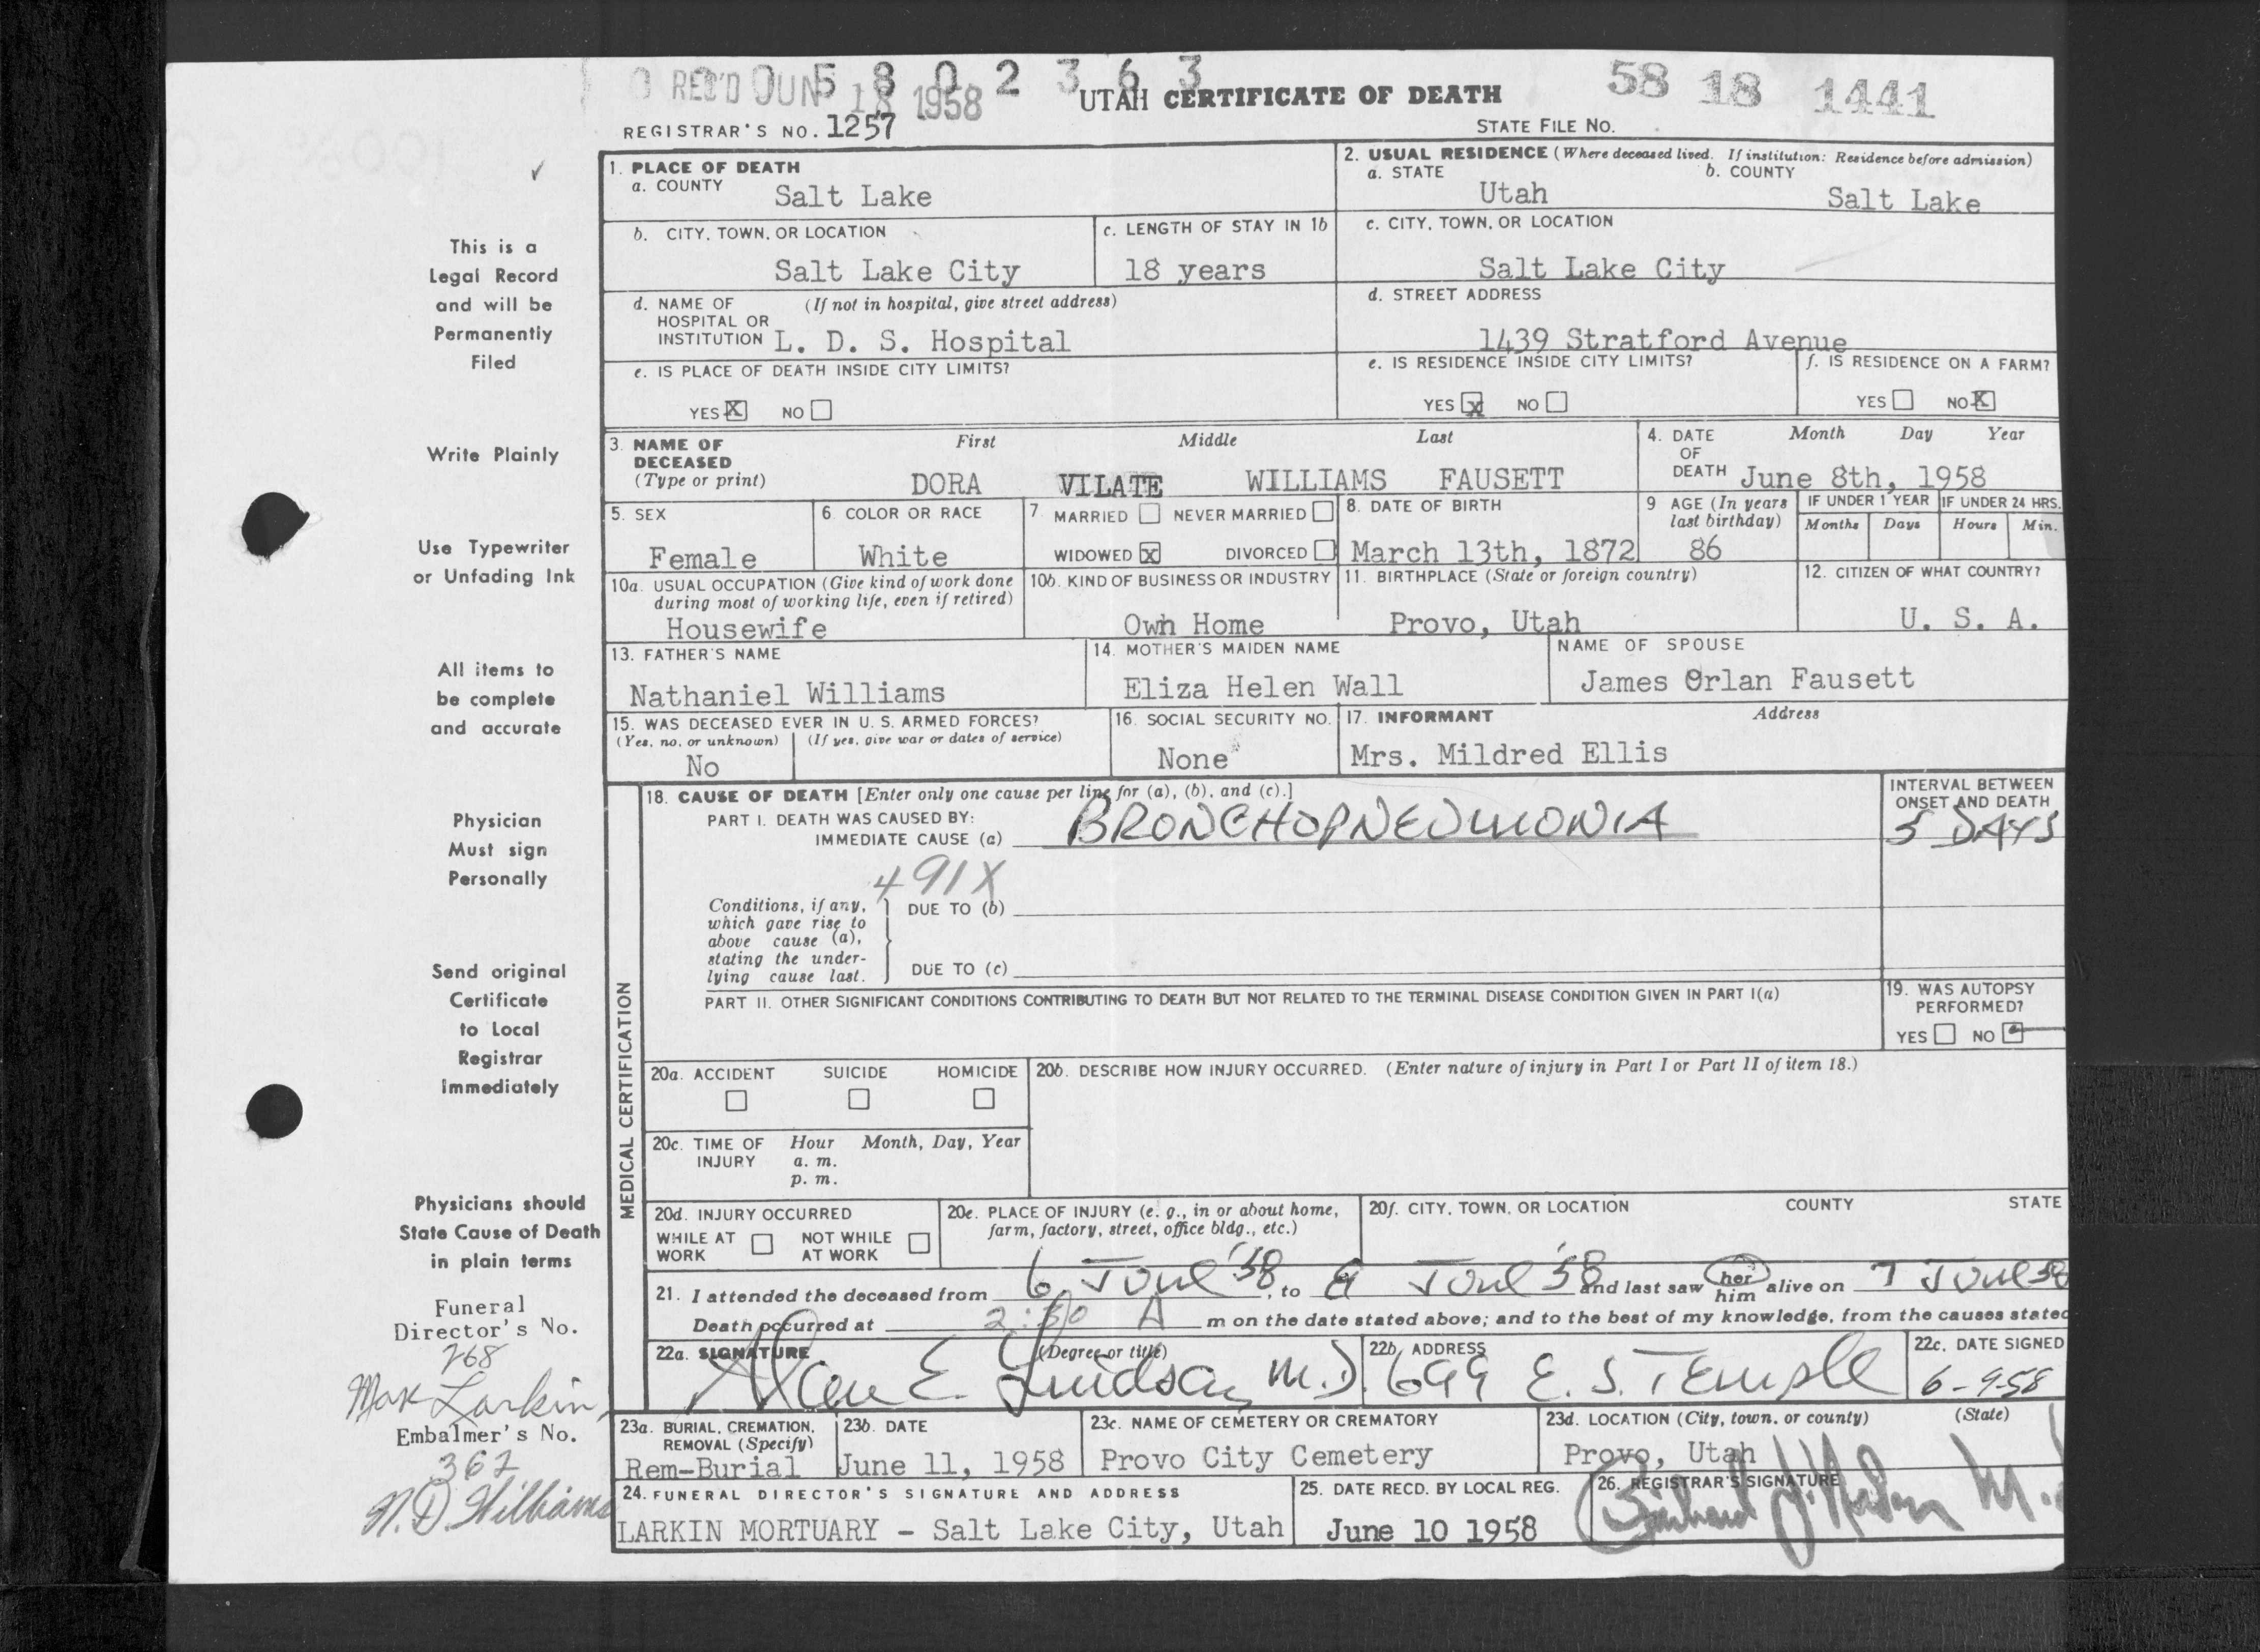 0 0 0 5 8 0 2 3 6 3
REC'D JUN 18 1958
58 18 1441
UTAH CERTIFICATE OF DEATH
REGISTRAR'S NO. 1257
STATE FILE NO.
1. PLACE OF DEATH
a. COUNTY
Salt Lake
2. USUAL RESIDENCE (Where deceased lived. If institution: Residence before admission)
a. STATE
Utah
b. COUNTY
Salt Lake
b. CITY, TOWN, OR LOCATION
Salt Lake City
c. LENGTH OF STAY IN 1b
18 years
c. CITY, TOWN, OR LOCATION
Salt Lake City
d. NAME OF (If not in hospital, give street address)
HOSPITAL OR
INSTITUTION L. D. S. Hospital
d. STREET ADDRESS
1439 Stratford Avenue
e. IS PLACE OF DEATH INSIDE CITY LIMITS?
YES X NO
e. IS RESIDENCE INSIDE CITY LIMITS?
YES X NO
f. IS RESIDENCE ON A FARM?
YES NO X
3. NAME OF
DECEASED
(Type or print)
First Middle Last
DORA VILATE WILLIAMS FAUSETT
4. DATE
OF
DEATH
Month Day Year
June 8th, 1958
5. SEX
Female
6. COLOR OR RACE
White
7. MARRIED NEVER MARRIED
WIDOWED X DIVORCED
8. DATE OF BIRTH
March 13th, 1872
9 AGE (In years
last birthday)
86
IF UNDER 1 YEAR
Months Days
IF UNDER 24 HRS.
Hours Min.
10a. USUAL OCCUPATION (Give kind of work done
during most of working life, even if retired)
Housewife
10b. KIND OF BUSINESS OR INDUSTRY
Own Home
11. BIRTHPLACE (State or foreign country)
Provo, Utah
12. CITIZEN OF WHAT COUNTRY?
U. S. A.
13. FATHER'S NAME
Nathaniel Williams
14. MOTHER'S MAIDEN NAME
Eliza Helen Wall
NAME OF SPOUSE
James Orlan Fausett
15. WAS DECEASED EVER IN U. S. ARMED FORCES?
(Yes, no, or unknown) (If yes, give war or dates of service)
No
16. SOCIAL SECURITY NO.
None
17. INFORMANT Address
Mrs. Mildred Ellis
MEDICAL CERTIFICATION
18. CAUSE OF DEATH [Enter only one cause per line for (a), (b), and (c).]
PART I. DEATH WAS CAUSED BY:
IMMEDIATE CAUSE (a) BRONCHOPNEUMONIA
INTERVAL BETWEEN
ONSET AND DEATH
5 DAYS
491X
Conditions, if any,
which gave rise to
above cause (a),
stating the under-
lying cause last.
DUE TO (b)
DUE TO (c)
PART II. OTHER SIGNIFICANT CONDITIONS CONTRIBUTING TO DEATH BUT NOT RELATED TO THE TERMINAL DISEASE CONDITION GIVEN IN PART I(a)
19. WAS AUTOPSY
PERFORMED?
YES NO
20a. ACCIDENT SUICIDE HOMICIDE
20b. DESCRIBE HOW INJURY OCCURRED. (Enter nature of injury in Part I or Part II of item 18.)
20c. TIME OF Hour Month, Day, Year
INJURY a. m.
p. m.
20d. INJURY OCCURRED
WHILE AT NOT WHILE
WORK AT WORK
20e. PLACE OF INJURY (e. g., in or about home,
farm, factory, street, office bldg., etc.)
20f. CITY, TOWN, OR LOCATION COUNTY STATE
21. I attended the deceased from 6 June '58, to 8 June '58 and last saw her him alive on 7 June 58
Death occurred at 2:30 A m on the date stated above; and to the best of my knowledge, from the causes stated
22a. SIGNATURE (Degree or title)
Alan E. Lindsay M.D.
22b. ADDRESS
699 E. S. Temple
22c. DATE SIGNED
6-9-58
23a. BURIAL, CREMATION,
REMOVAL (Specify)
Rem-Burial
23b. DATE
June 11, 1958
23c. NAME OF CEMETERY OR CREMATORY
Provo City Cemetery
23d. LOCATION (City, town, or county) (State)
Provo, Utah
24. FUNERAL DIRECTOR'S SIGNATURE AND ADDRESS
LARKIN MORTUARY - Salt Lake City, Utah
25. DATE RECD. BY LOCAL REG.
June 10 1958
26. REGISTRAR'S SIGNATURE
This is a
Legal Record
and will be
Permanently
Filed
Write Plainly
Use Typewriter
or Unfading Ink
All items to
be complete
and accurate
Physician
Must sign
Personally
Send original
Certificate
to Local
Registrar
Immediately
Physicians should
State Cause of Death
in plain terms
Funeral
Director's No.
268
Max Larkin
Embalmer's No.
367
N. D. Williams